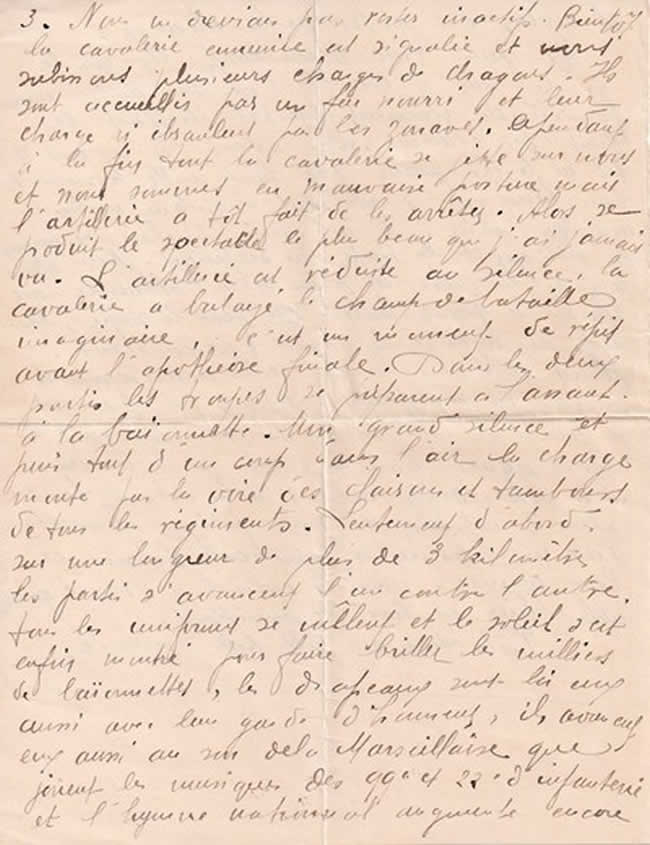 3. Nous ne devions pas rester inactifs. Bientôt
la cavalerie ennemie est signalée et nous
subissons plusieurs charges de dragons. Ils
sont accueillis par un feu nourri et leur
charge n'ébranlent pas les zouaves. Cependant
à la fin tout la cavalerie se jette sur nous
et nous sommes en mauvaise posture mais
l'artillerie a tôt fait de les arrêter. Alors se
produit le spectacle le plus beau que j'ai jamais
vu. L'artillerie est réduite au silence, la
cavalerie a balayé le champ de bataille
imaginaire, c'est un moment de répit
avant l'apothéose finale. Dans les deux
partis les troupes se préparent à l'assaut
à la baïonnette. Un grand silence et
puis tout d'un coup dans l'air la charge
monte par la voix des clairons et tambours
de tous les régiments. Lentement d'abord
sur une longueur de plus de 3 kilomètres
les partis s'avancent l'un contre l'autre.
tous les uniformes se mêlent et le soleil s'est
enfin montré pour faire briller les milliers
de baïonnettes, les drapeaux sont là eux
aussi avec leur garde d'honneur, ils avancent
eux aussi au son de la Marseillaise que
jouent les musiques des 99e et 22e d'infanterie
et l'hymne national augmente encore